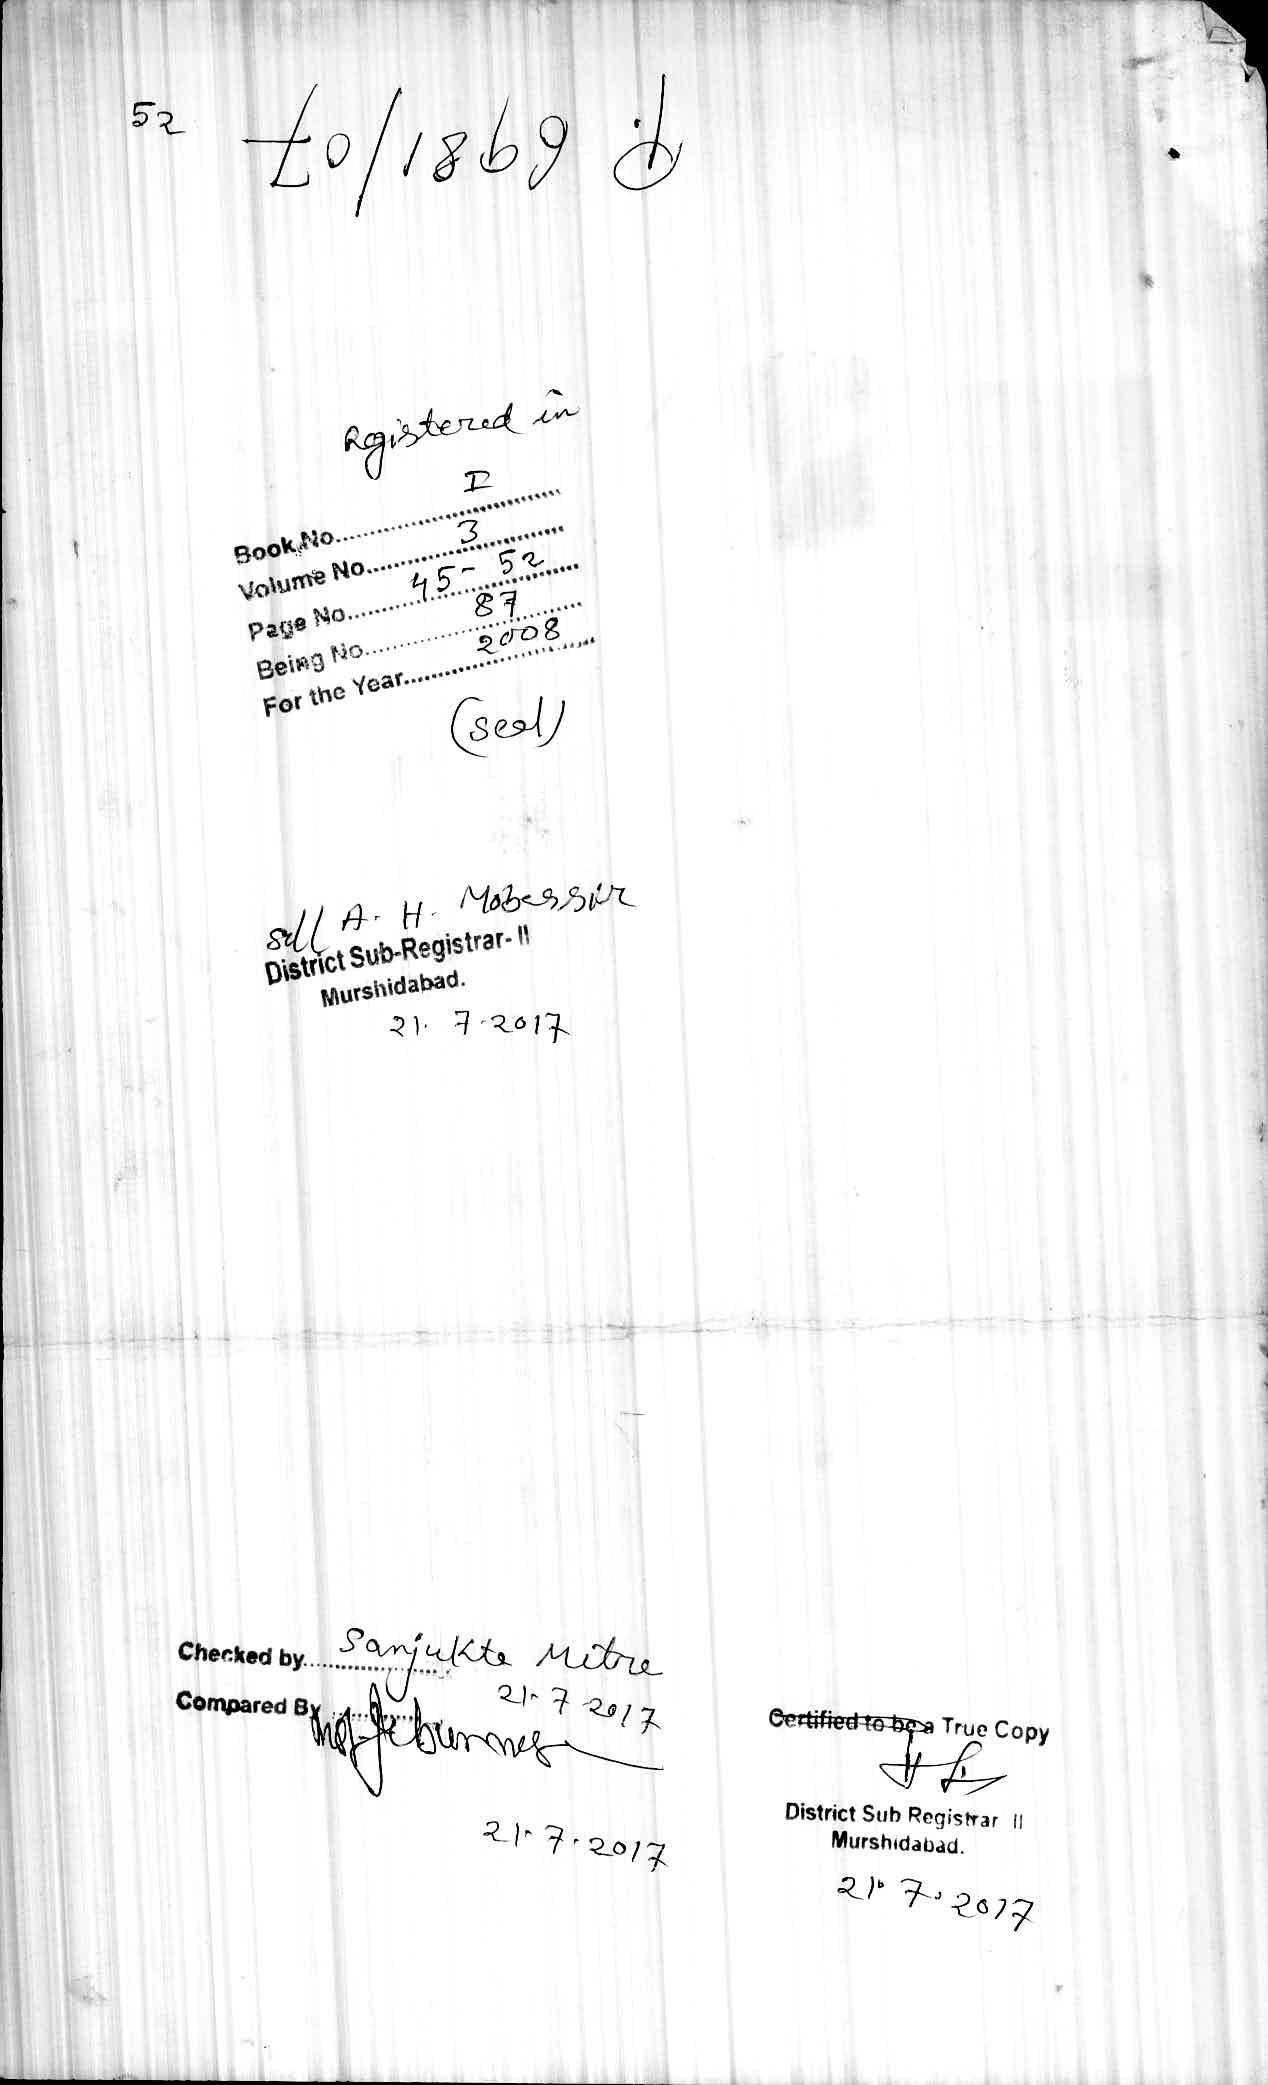 52
6981/07
Registered in
Book No. I
Volume No. 3
Page No. 45 - 52
Being No. 87
For the Year 2008
(seal)
sd/ A. H. Mobassir
District Sub-Registrar- II
Murshidabad.
21. 7. 2017
Checked by Sanjukta Mitra
21. 7 2017
Compared By
21. 7. 2017
Certified to be a True Copy
District Sub Registrar II
Murshidabad.
21. 7. 2017